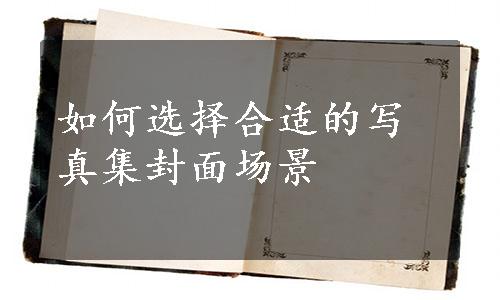 如何选择合适的写
真集封面场景